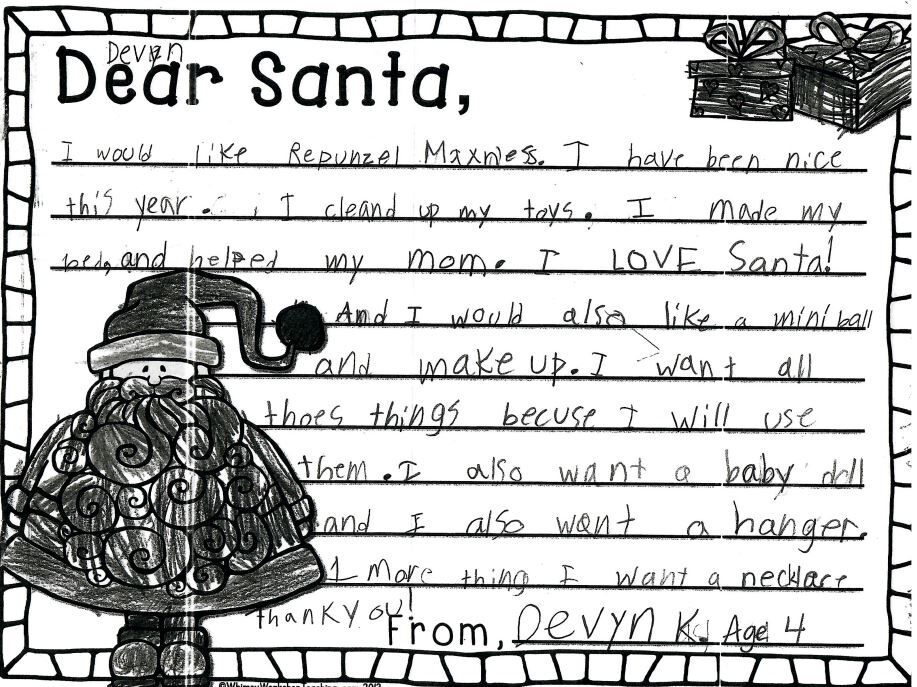 Devyn
Dear Santa,
I would like Repunzel Maxness. I have been nice
this year. I cleand up my toys. I made my
bed, and helped my mom. I LOVE Santa!
And I would also like a mini ball
and make up. I want all
thoes things becuse I will use
them. I also want a baby doll
and I also want a hanger.
1 more thing I want a necklace
thank you!
From, Devyn K. Age 4
©WhimsyWorkshopTeaching.com 2013